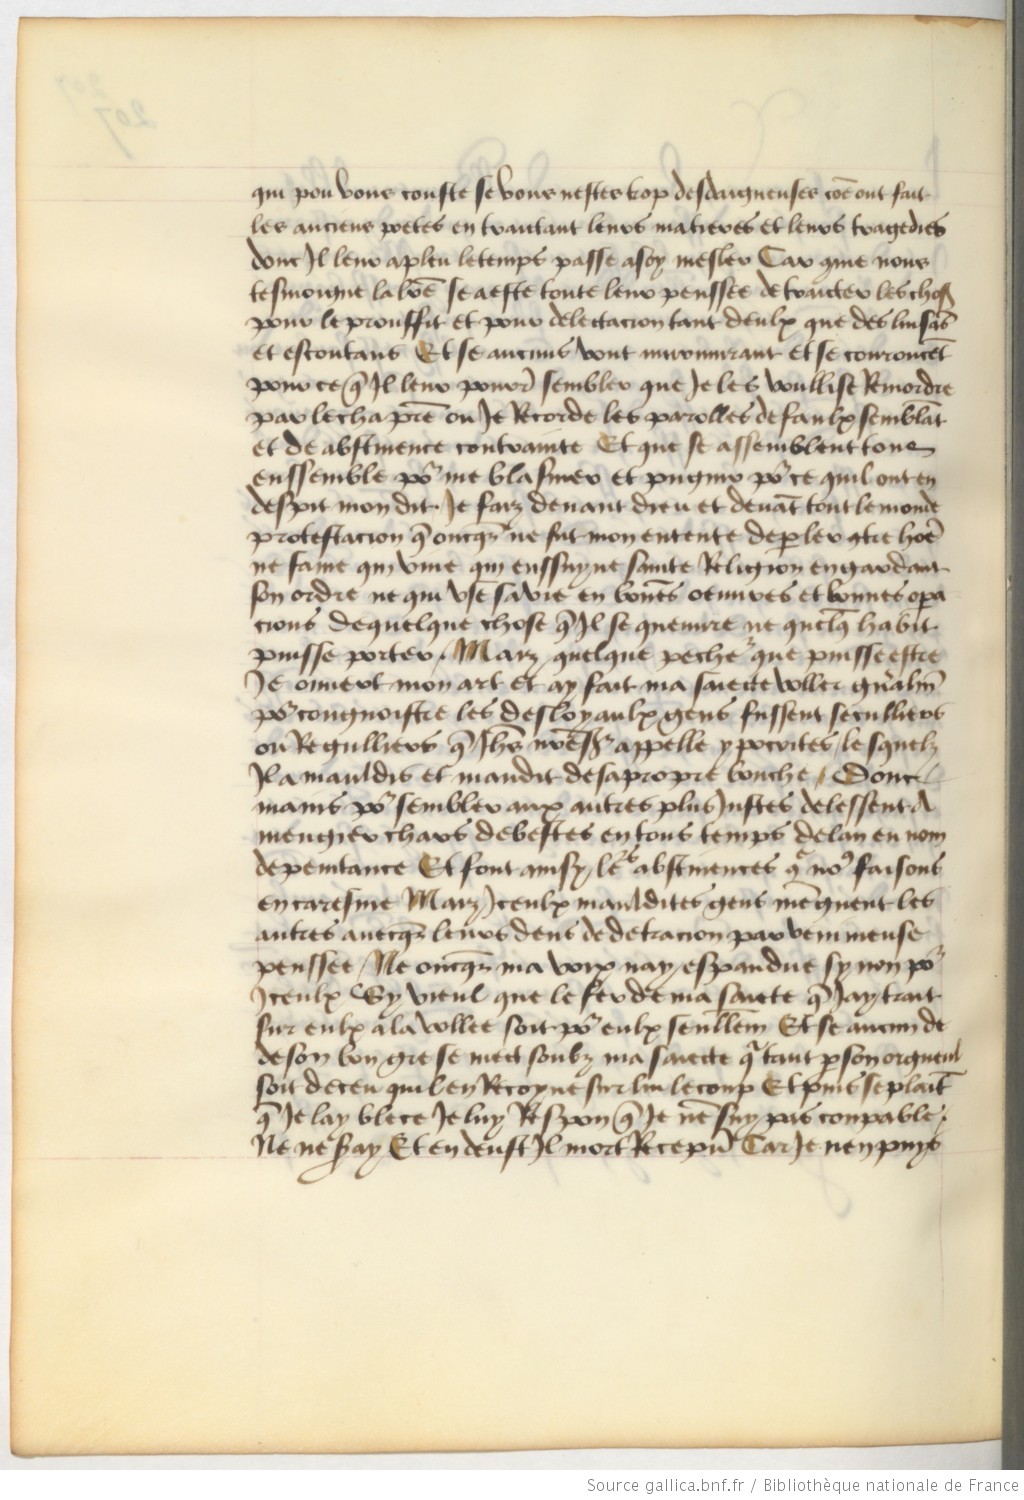 qui pou vous couste se vous nestes trop desdaigneuses coe ont fait
les anciens poetes en traittant leurs matieres et leurs tragedies
donc Il leur a pleu le temps passe a soy mesler Car q̄me nous
tesmoigne la bo̅e se a este toute leur penssee de traicter les choses
pour le prouffit et pour delectacion tant deulx que des lisa̅s
et escoutans Et se aucuns vont murmurant et se couroucēt
pour ce q̄ Il leur pourr̄ sembler que Je les voullise Remordre
par le chapr̄e ou Je Recorde les parolles de faulx semblāt
et de abstinence contrainte Et que se assemblent tous
enssemble po᷑ me blasmer et pugnir po᷑ ce quil ont en
despit mon dit. Je faiz deuant dieu et deuāt tout le monde
protestacion q̄ oncqz ne fut mon entente de p̲ler 9tre hōe
ne fame qui viue qui enssuyue sainte Religion en gardant
son ordre ne qui vse sa vie en bōnes oeuures et bonnes op̲a
cions de quelque chose q̄ Il se queuure ne quelq̄ habit
puisse porter. Maiz quelque peche que puisse estre
Je ouuert mon art et ay fait ma saiecte voller gn̄alm̄
po᷑ congnoistre les desloyaulx gens fussent seculliers
ou Regulliers q̄ Jhs n̄re appelle ypocrites lesquelz
Il a mauldis et maudit de sa propre bouche / Dont
mains po᷑ sembler aux autres plus Justes delessent A
mengier chars de bestes en tous temps de lan en nom
de penitance Et font ainsy les abstinences q̄ no᷑ faisons
en caresme Maiz Jceulx mauldites gens mēguent les
autres auecqz leurs dens de detracion par venimeuse
penssee / Ne oncqz ma voix nay espandue sy non po᷑
Jceulx Sy vieul que le fer de ma saiete q̄ Jay trait
sur eulx a la vollee soit po᷑ eulx seullem̄ Et se aucun de
de son bon gre se mect soubz ma saiecte q̄ tant p̲ son orgueul
soit deceu quil en Recoyue sur lui le coup Et puis se plaīt
q̄ Je lay blece Je luy Respon q̄ Je nē suy pas coupable.
Ne ne seray Et en deust Il mort Receuoir Car Je nen puys
Source gallica.bnf.fr / Bibliothèque nationale de France